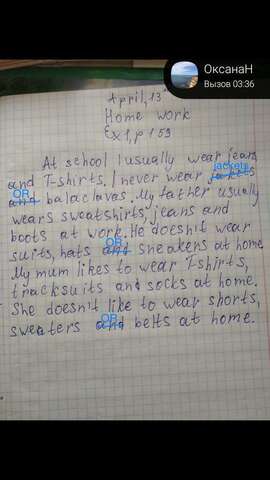 ОксанаН
Вызов 03:36
April, 13
Home work
Ex1, p 159
At school I usually wear jeans
jackets
and T-shirts. I never wear jackets
OR
and balaclavas. My father usually
wears sweatshirts, jeans and
boots at work. He doesn't wear
OR
suits, hats and sneakers at home.
My mum likes to wear T-shirts,
tracksuits and socks at home.
She doesn't like to wear shorts,
OR
sweaters and belts at home.